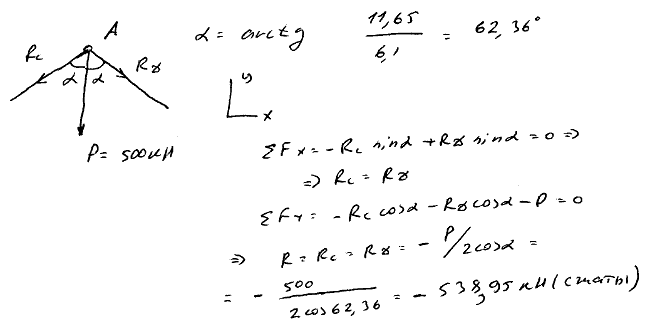 A
Rc
Rв
α α
P = 500 кН
α = arctg 11,65 / 6,1 = 62,36°
y
x
ΣFx = - Rc sinα + Rв sinα = 0 =>
=> Rc = Rв
ΣFy = - Rc cosα - Rв cosα - P = 0
=> R = Rc = Rв = - P/2cosα =
= - 500 / 2 cos 62,36 = - 538,95 кН (сжаты)